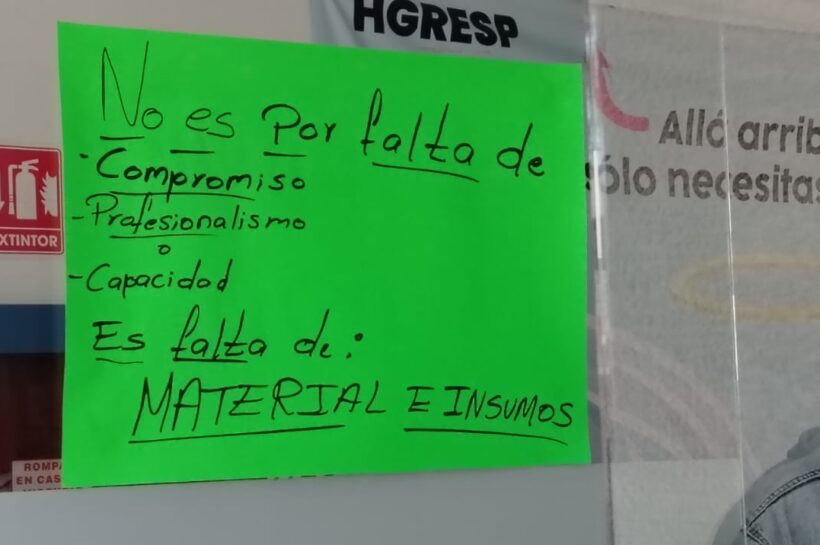 HGRESP
No es Por falta de
- Compromiso
- Profesionalismo
o
- Capacidad
Es falta de:
MATERIAL E INSUMOS
Allá arrib
ólo necesitas
XTINTOR
ROMPA
EN CAS